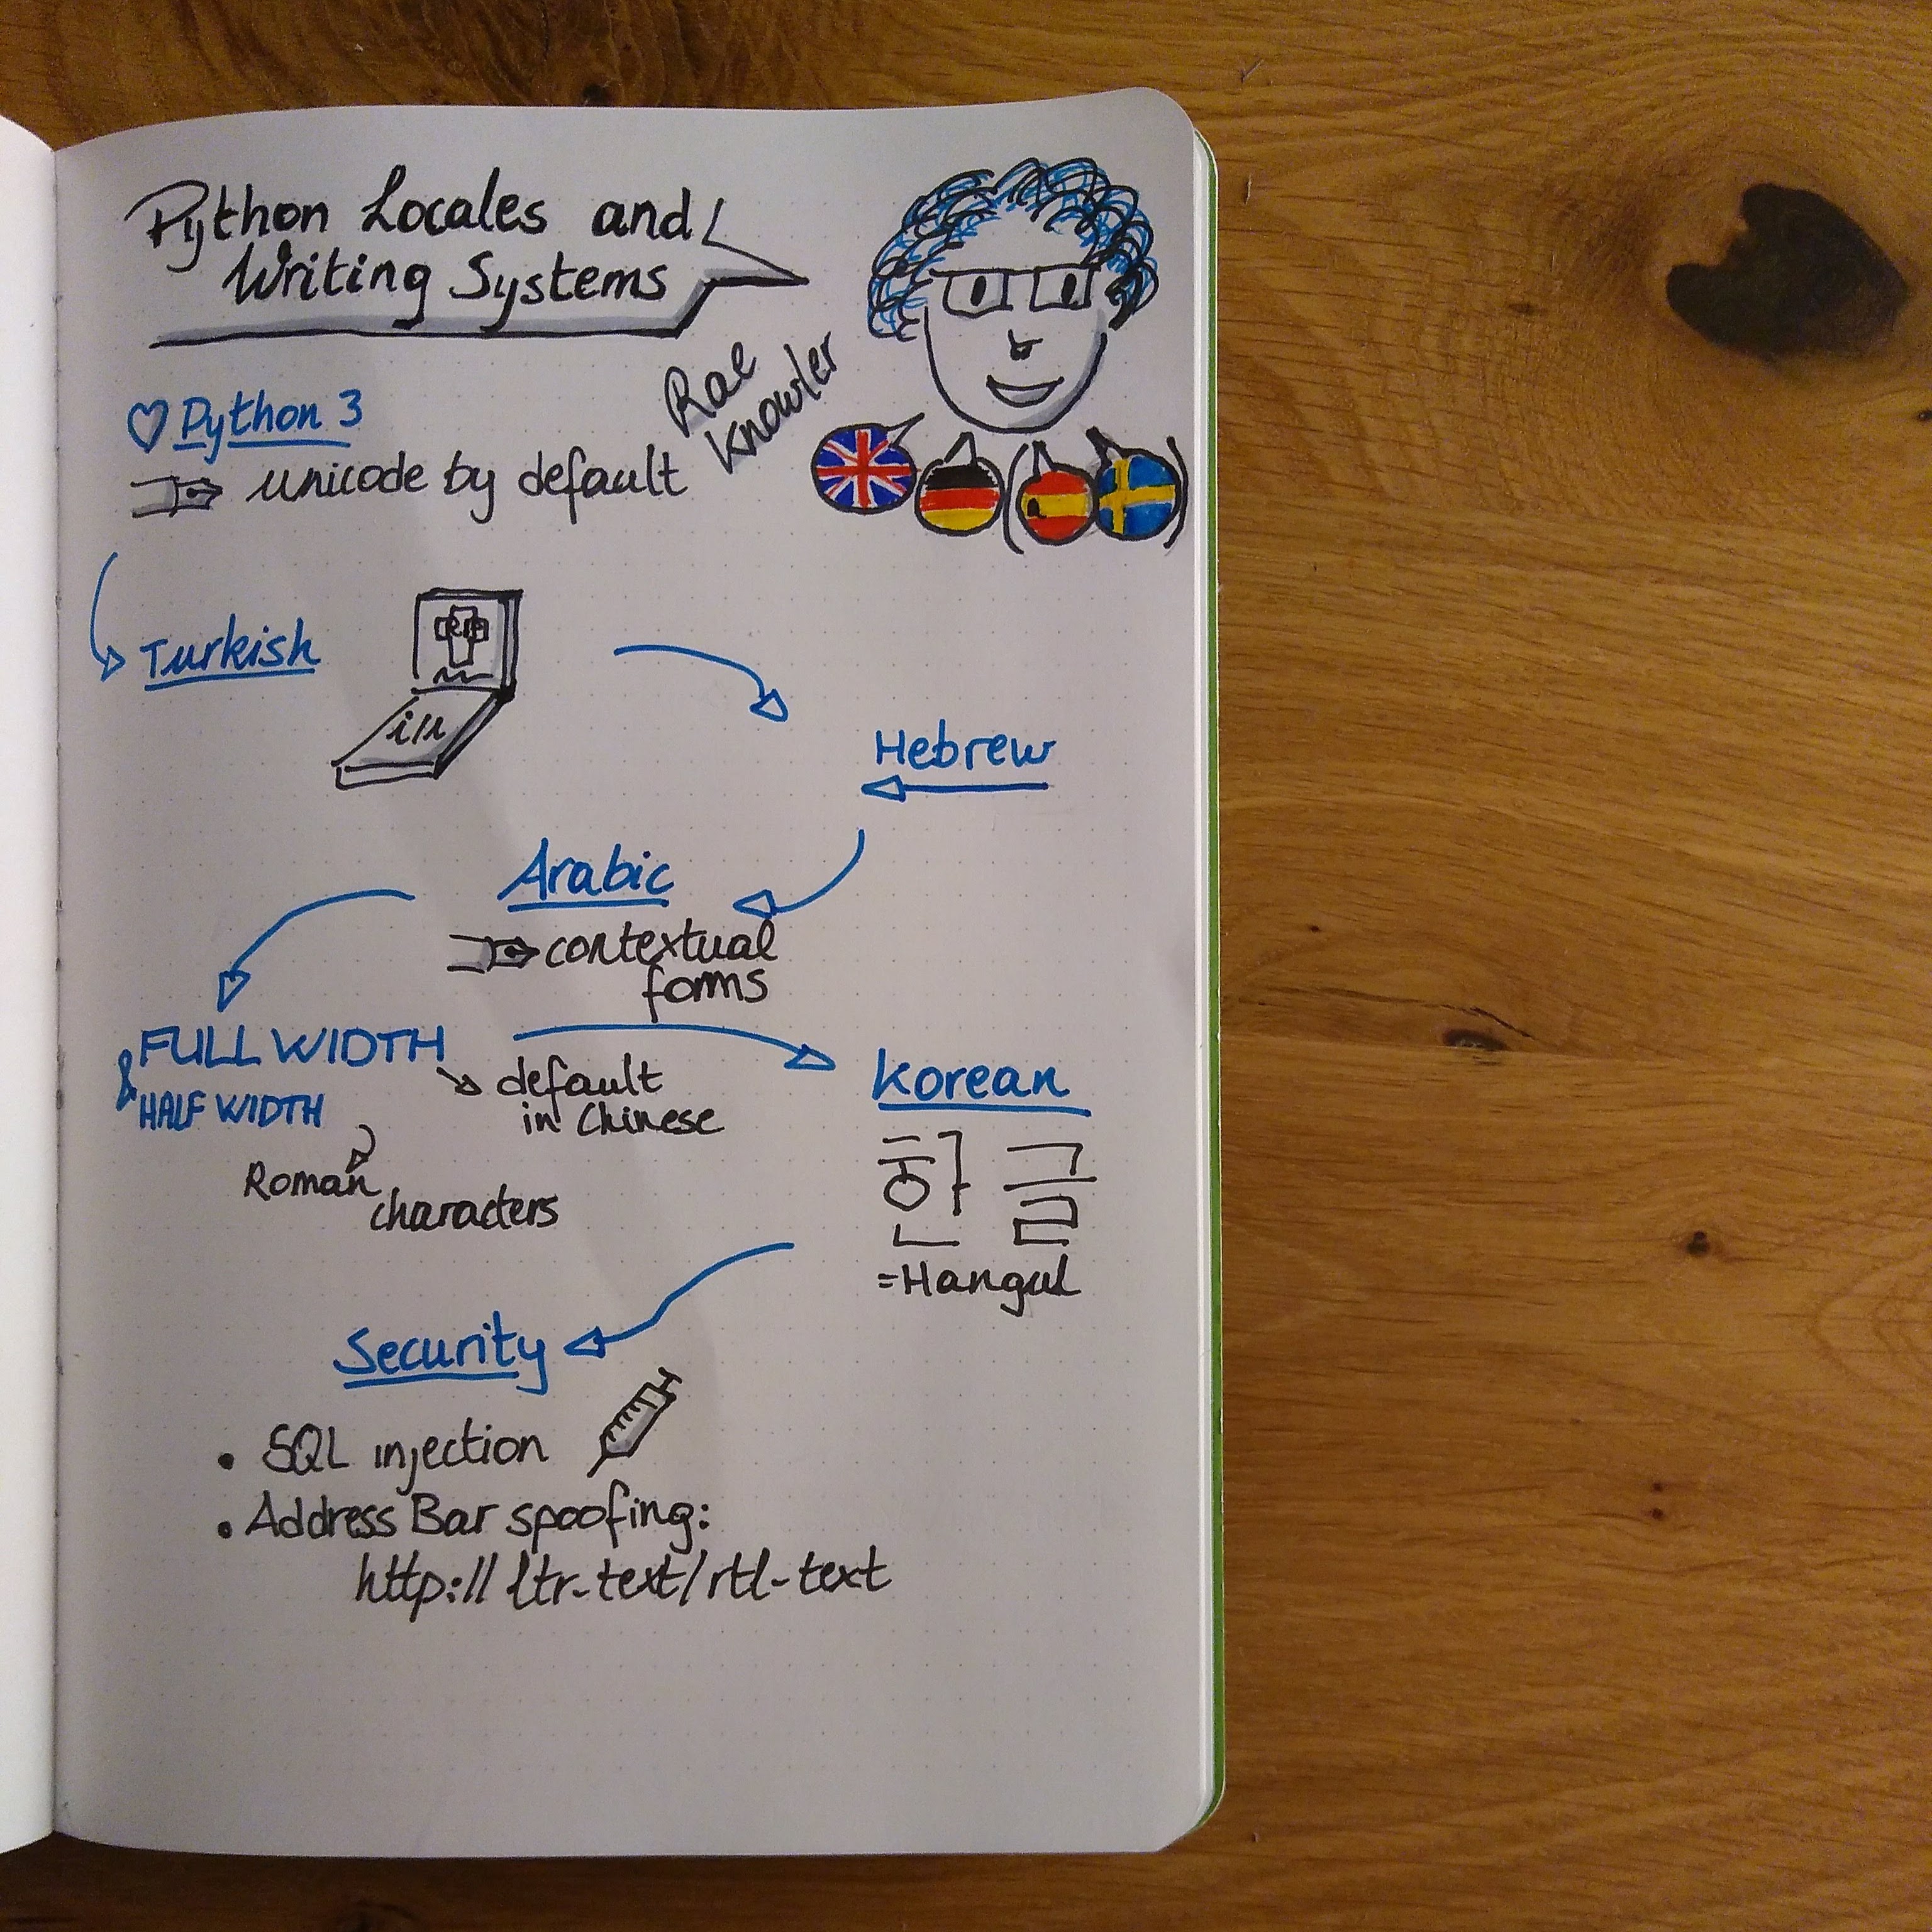 Python Locales and
Writing Systems
Rae
Knowler
Python 3
unicode by default
Turkish
Hebrew
Arabic
contextual
forms
FULL WIDTH
& HALF WIDTH
default
in Chinese
Roman
characters
Korean
한글
=Hangul
Security
• SQL injection
• Address Bar spoofing:
http://ltr-text/rtl-text